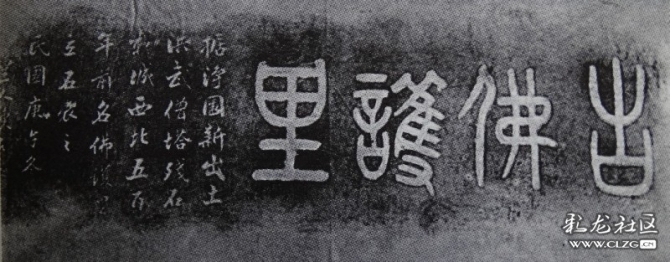 古佛護里
據淨園新出土
洪武僧塔殘石
知城西北五百
年前名佛護里
立石表之
民國庚午冬
彩龙社区
WWW.CLZG.CN